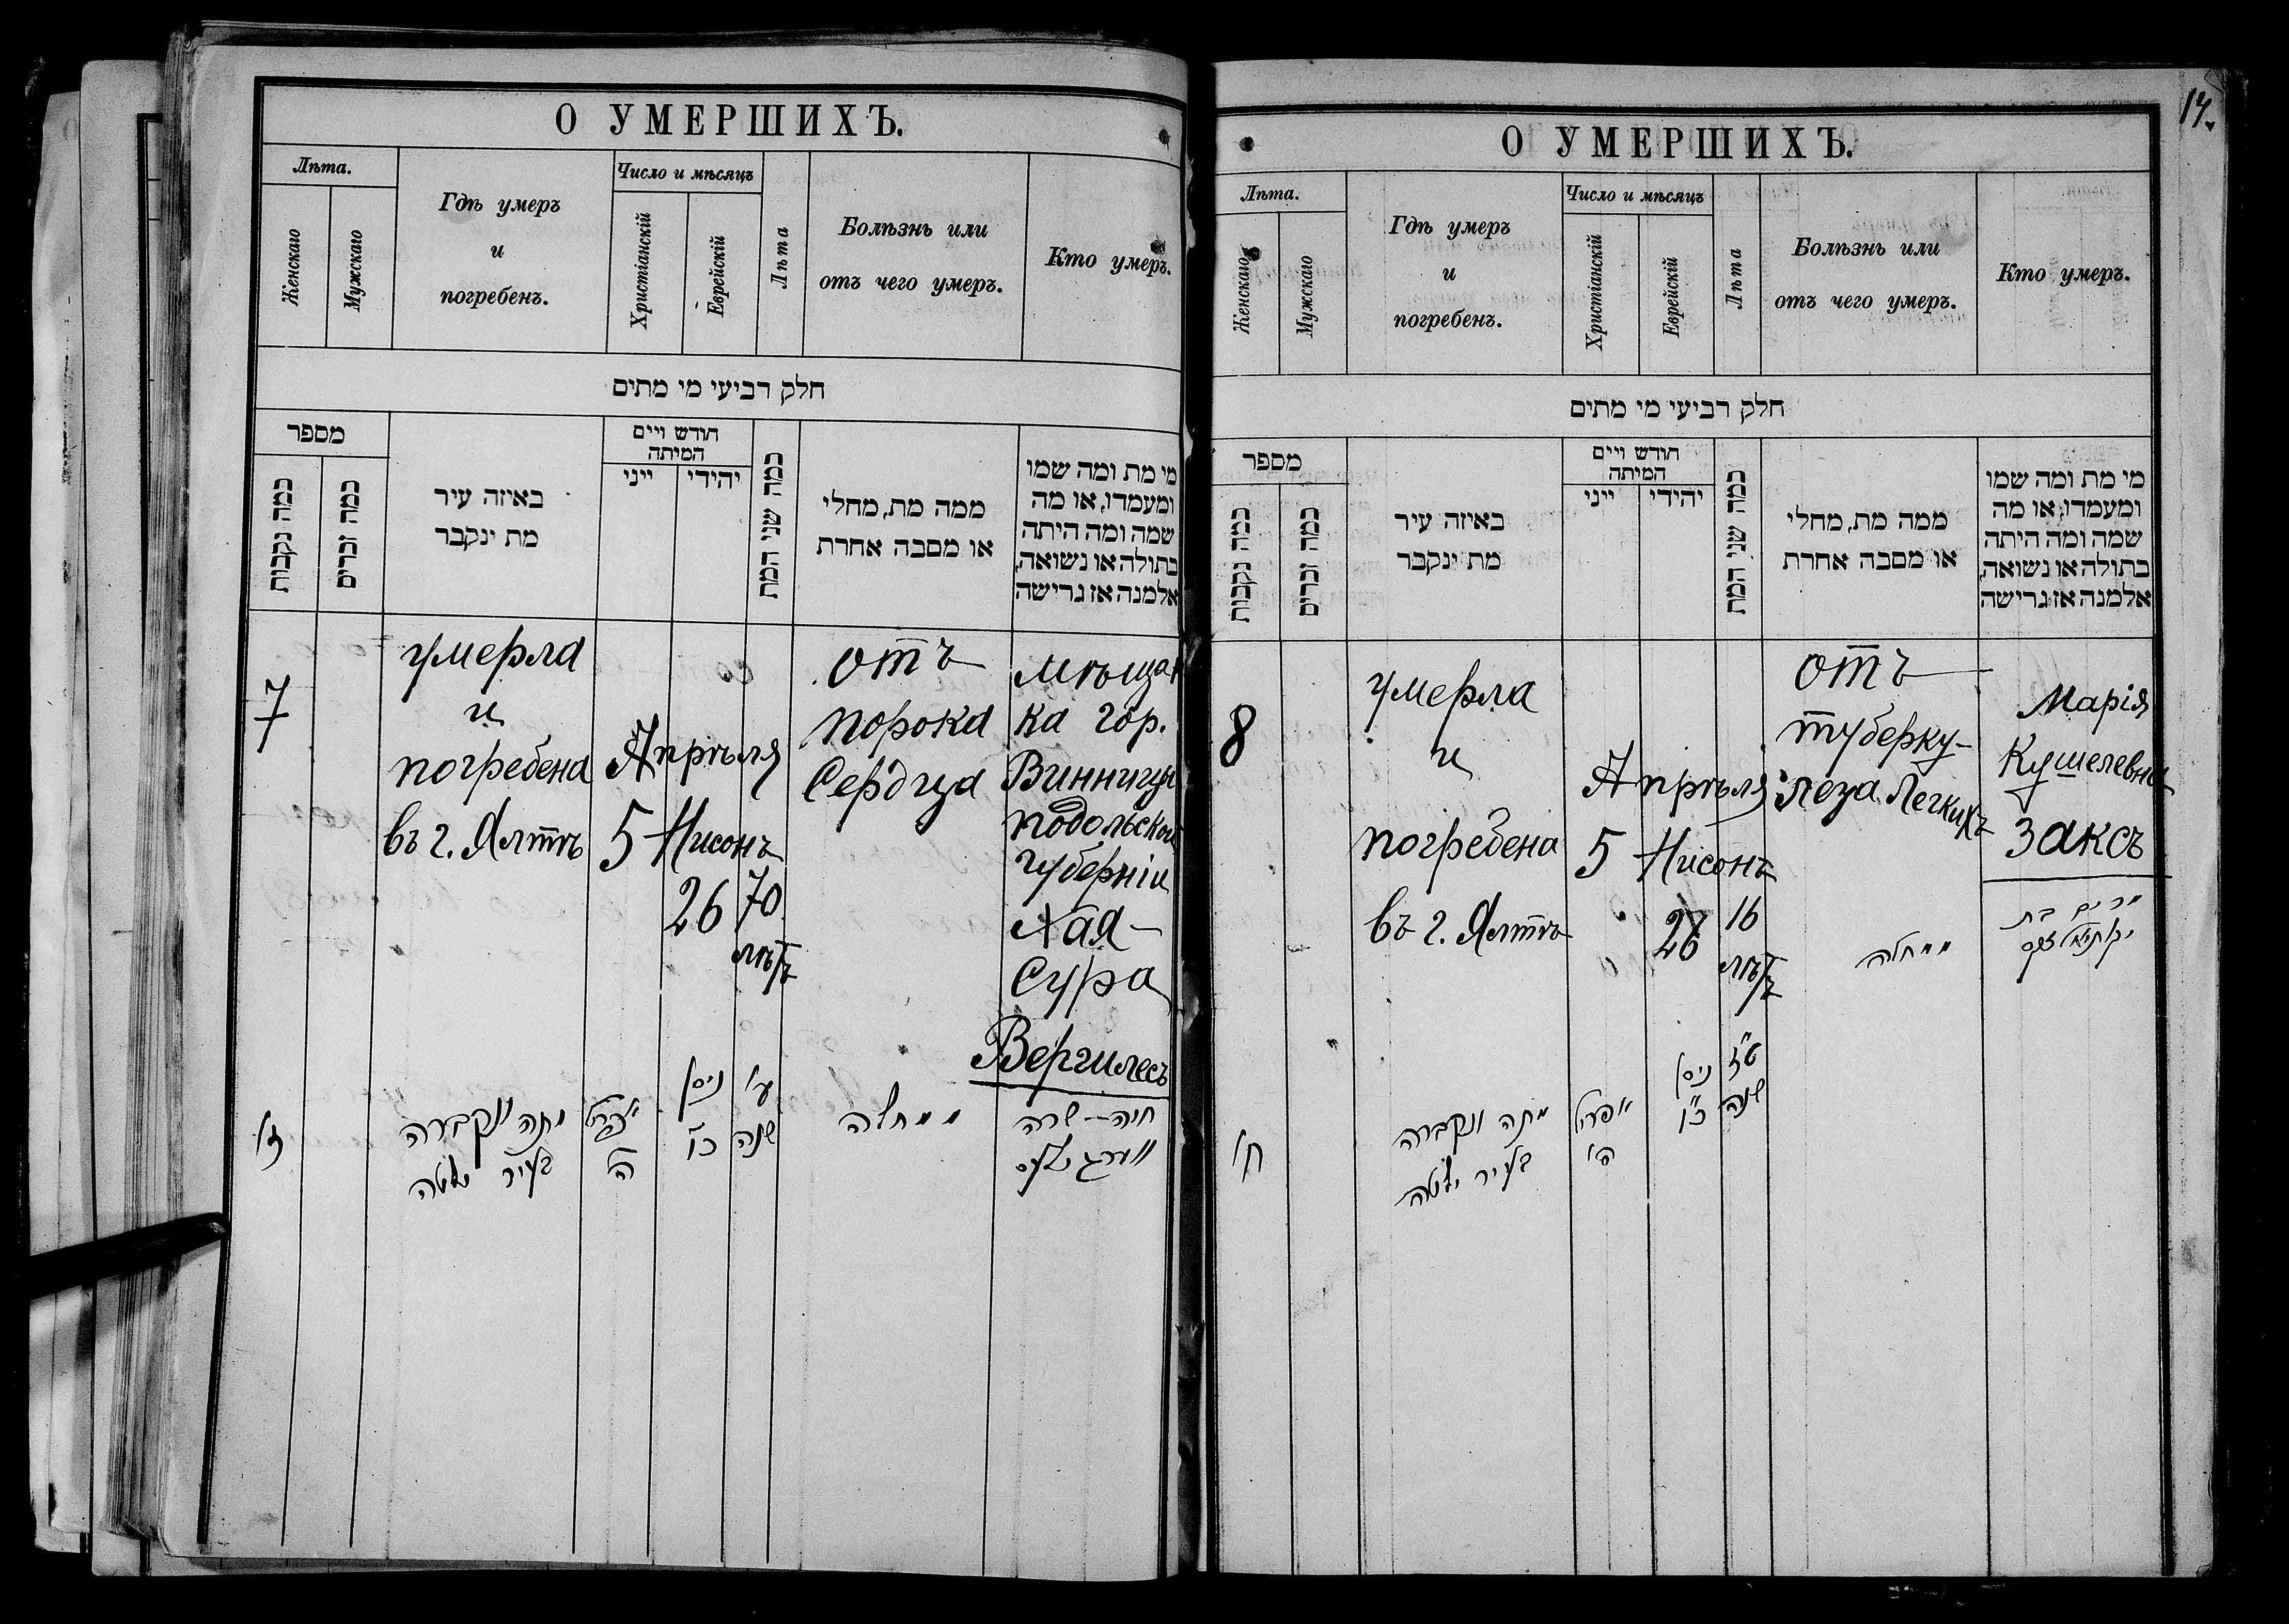 О УМЕРШИХЪ.
Лѣта.
Женскаго
Мужскаго
Гдѣ умеръ
и
погребенъ.
Число и мѣсяцъ
Христіанскій
Еврейскій
Лѣта
Болѣзнь или
отъ чего умеръ.
Кто умеръ.
חלק רביעי מי מתים
מספר
כמה נקבות
כמה זכרים
באיזה עיר
מת ינקבר
חודש ויים
המיתה
ייני
יהידי
כמה שני המת
ממה מת, מחלי
או מסבה אחרת
מי מת ומה שמו
ומעמדו, או מה
שמה ומה היתה
בתולה או נשואה,
אלמנה אז גרישה
7
умерла
и
погребена
въ г. Ялтѣ
Апрѣля
5
Нисонъ
26
70
лѣтъ
отъ
порока
Сердца
Мѣщан
ка гор.
Винницы
Подольской
губерніи
Хая-
Сура
Вергилесъ
ז'
מתה ונקברה
בעיר יאלטה
אפריל
ה'
ניסן
כ"ו
ע'
שנה
ממחלה
חיה-שרה
ווערגילעס
14.
О УМЕРШИХЪ.
Лѣта.
Женскаго
Мужскаго
Гдѣ умеръ
и
погребенъ.
Число и мѣсяцъ
Христіанскій
Еврейскій
Лѣта
Болѣзнь или
отъ чего умеръ.
Кто умеръ.
חלק רביעי מי מתים
מספר
כמה נקבות
כמה זכרים
באיזה עיר
מת ינקבר
חודש ויים
המיתה
ייני
יהידי
כמה שני המת
ממה מת, מחלי
או מסבה אחרת
מי מת ומה שמו
ומעמדו, או מה
שמה ומה היתה
בתולה או נשואה,
אלמנה אז גרישה
8
умерла
и
погребена
въ г. Ялтѣ
Апрѣля
5
Нисонъ
26
16
лѣтъ
отъ
туберку-
леза Легкихъ
Марія
Кушелевна
Заксъ
מרים בת
יקותיאל זקס
ח'
מתה ונקברה
בעיר יאלטה
אפריל
ה'
ניסן
כ"ו
ט"ז
שנה
ממחלה